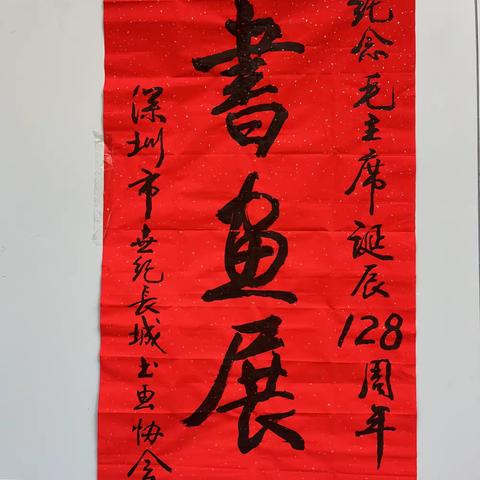 纪念毛主席诞辰128周年
書画展
深圳市世纪长城书画协会